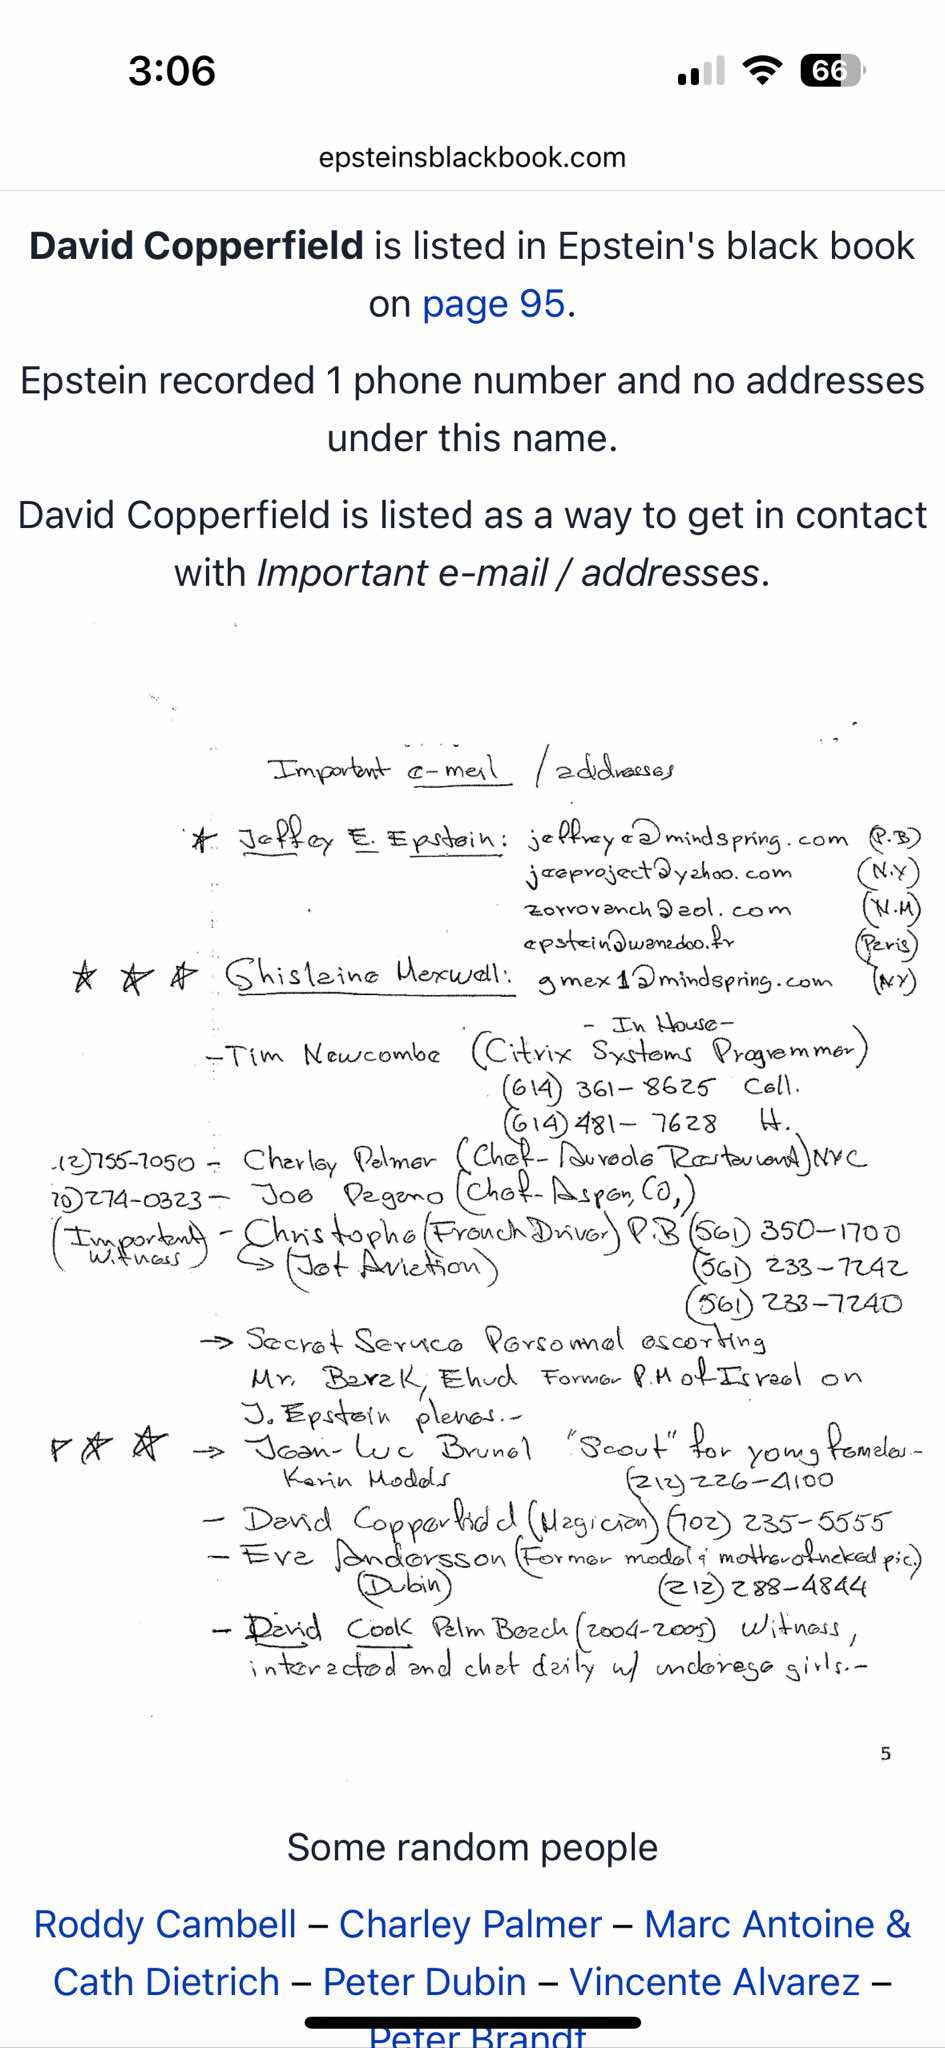 3:06
66
epsteinsblackbook.com
David Copperfield is listed in Epstein's black book
on page 95.
Epstein recorded 1 phone number and no addresses
under this name.
David Copperfield is listed as a way to get in contact
with Important e-mail / addresses.
Important e-mail / addresses
Jeffrey E. Epstein: jeffreye@mindspring.com (P.B)
jeeproject@yahoo.com (N.Y)
zorroranch@aol.com (N.M)
epstein@wanadoo.fr (Paris)
Ghislaine Maxwell: gmax1@mindspring.com (NY)
- In House -
- Tim Newcombe (Citrix Systems Programmer)
(614) 361-8625 Cell.
(614) 481-7628 H.
12)755-7050 - Charley Palmer (Chef- Aureole Restaurant) NYC
70)274-0323 - Joe Pagano (Chef- Aspen, CO,)
(Important Witness) - Christophe (French Driver) P.B (561) 350-1700
(Jet Aviation) (561) 233-7242
(561) 233-7240
→ Secret Service Personnel escorting
Mr. Barak, Ehud Former P.M of Israel on
J. Epstein planes.-
→ Jean-Luc Brunel "Scout" for young females-
Karin Models (212) 226-4100
- David Copperfield (Magician) (702) 235-5555
- Eva Andersson (Former model & mother of naked pic.)
(Dubin) (212) 288-4844
- David Cook Palm Beach (2004-2005) Witness,
interacted and chat daily w/ underage girls.-
5
Some random people
Roddy Cambell – Charley Palmer – Marc Antoine &
Cath Dietrich – Peter Dubin – Vincente Alvarez –
Peter Brandt